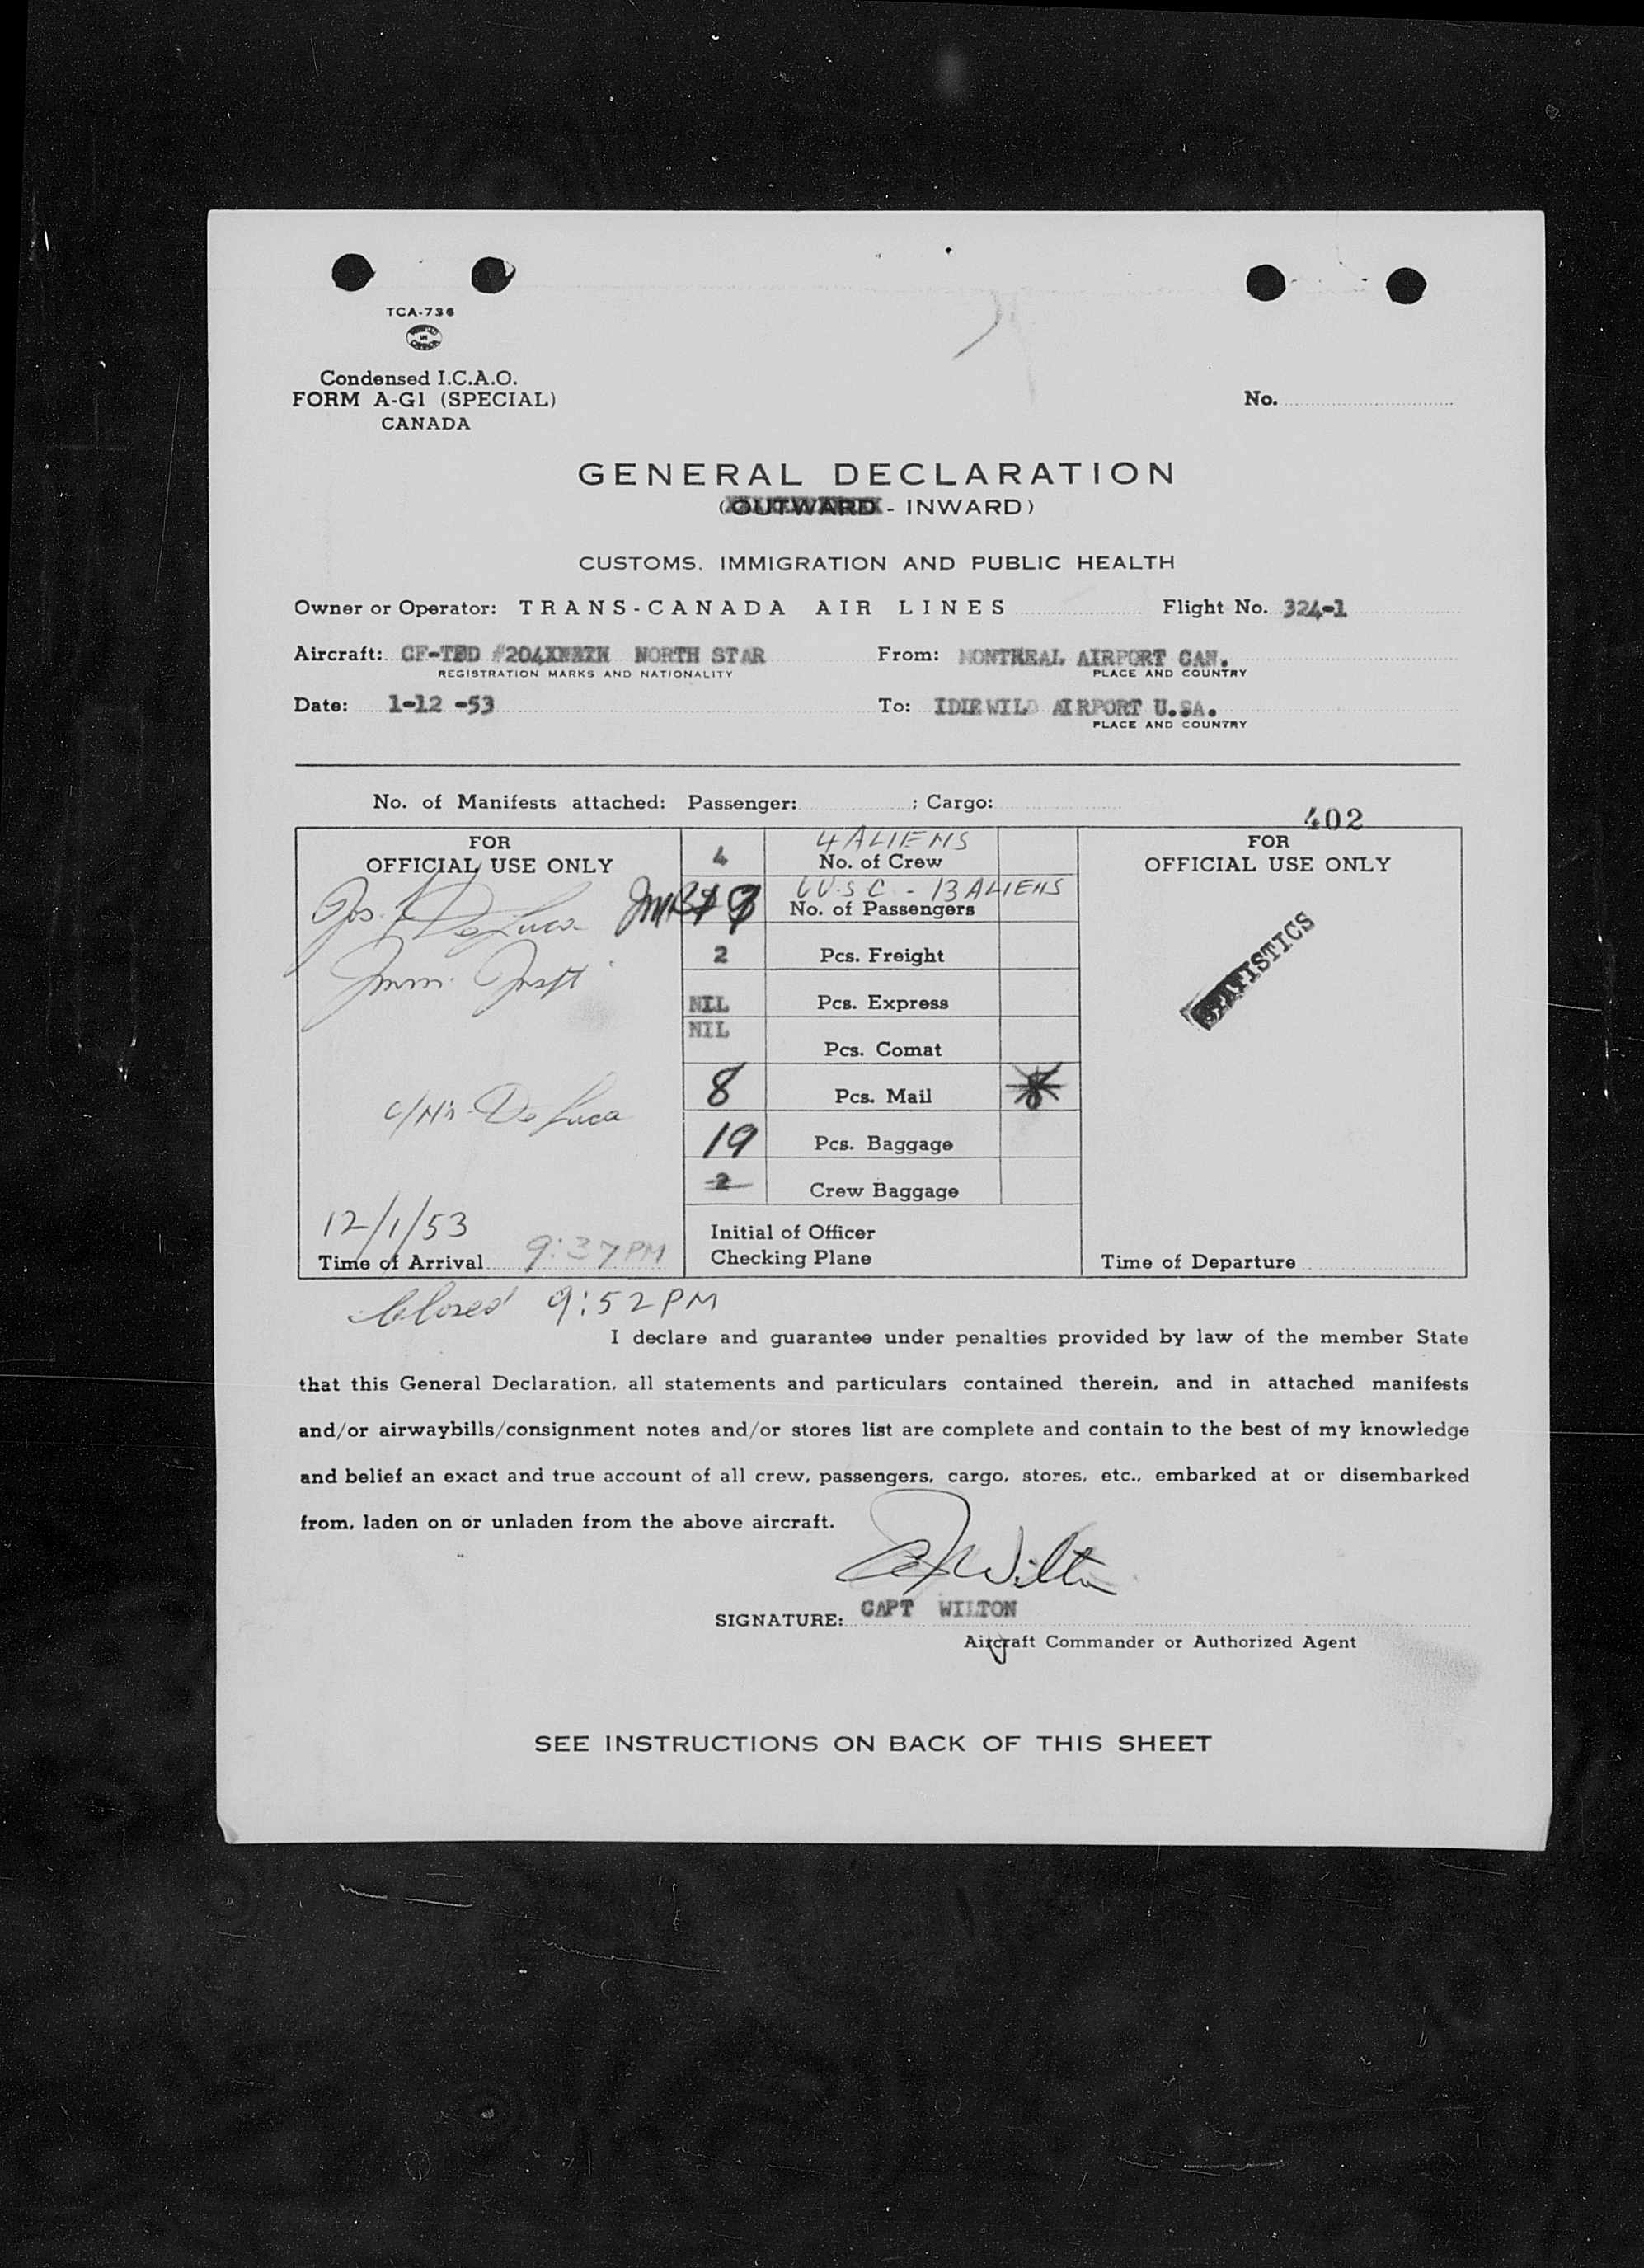 TCA-736
Condensed I.C.A.O.
FORM A-G1 (SPECIAL)
CANADA
No.
GENERAL DECLARATION
(OUTWARD - INWARD)
CUSTOMS, IMMIGRATION AND PUBLIC HEALTH
Owner or Operator: TRANS-CANADA AIR LINES Flight No. 324-1
Aircraft: CF-TED #204 NORTH STAR From: MONTREAL AIRPORT CAN.
REGISTRATION MARKS AND NATIONALITY PLACE AND COUNTRY
Date: 1-12 -53 To: IDIEWILD AIRPORT U.SA.
PLACE AND COUNTRY
No. of Manifests attached: Passenger: ; Cargo:
402
FOR
OFFICIAL USE ONLY
Jos. De Luca
Imm. Insp.
C/N's De Luca
12/1/53
Time of Arrival 9:37 PM
4 4 ALIENS
No. of Crew
USC - 13 ALIENS
No. of Passengers
2 Pcs. Freight
NIL Pcs. Express
NIL Pcs. Comat
8 Pcs. Mail 8
19 Pcs. Baggage
2 Crew Baggage
Initial of Officer
Checking Plane
FOR
OFFICIAL USE ONLY
STATISTICS
Time of Departure
Closed 9:52 PM
I declare and guarantee under penalties provided by law of the member State
that this General Declaration, all statements and particulars contained therein, and in attached manifests
and/or airwaybills/consignment notes and/or stores list are complete and contain to the best of my knowledge
and belief an exact and true account of all crew, passengers, cargo, stores, etc., embarked at or disembarked
from, laden on or unladen from the above aircraft.
Wilton
SIGNATURE: CAPT WILTON
Aircraft Commander or Authorized Agent
SEE INSTRUCTIONS ON BACK OF THIS SHEET